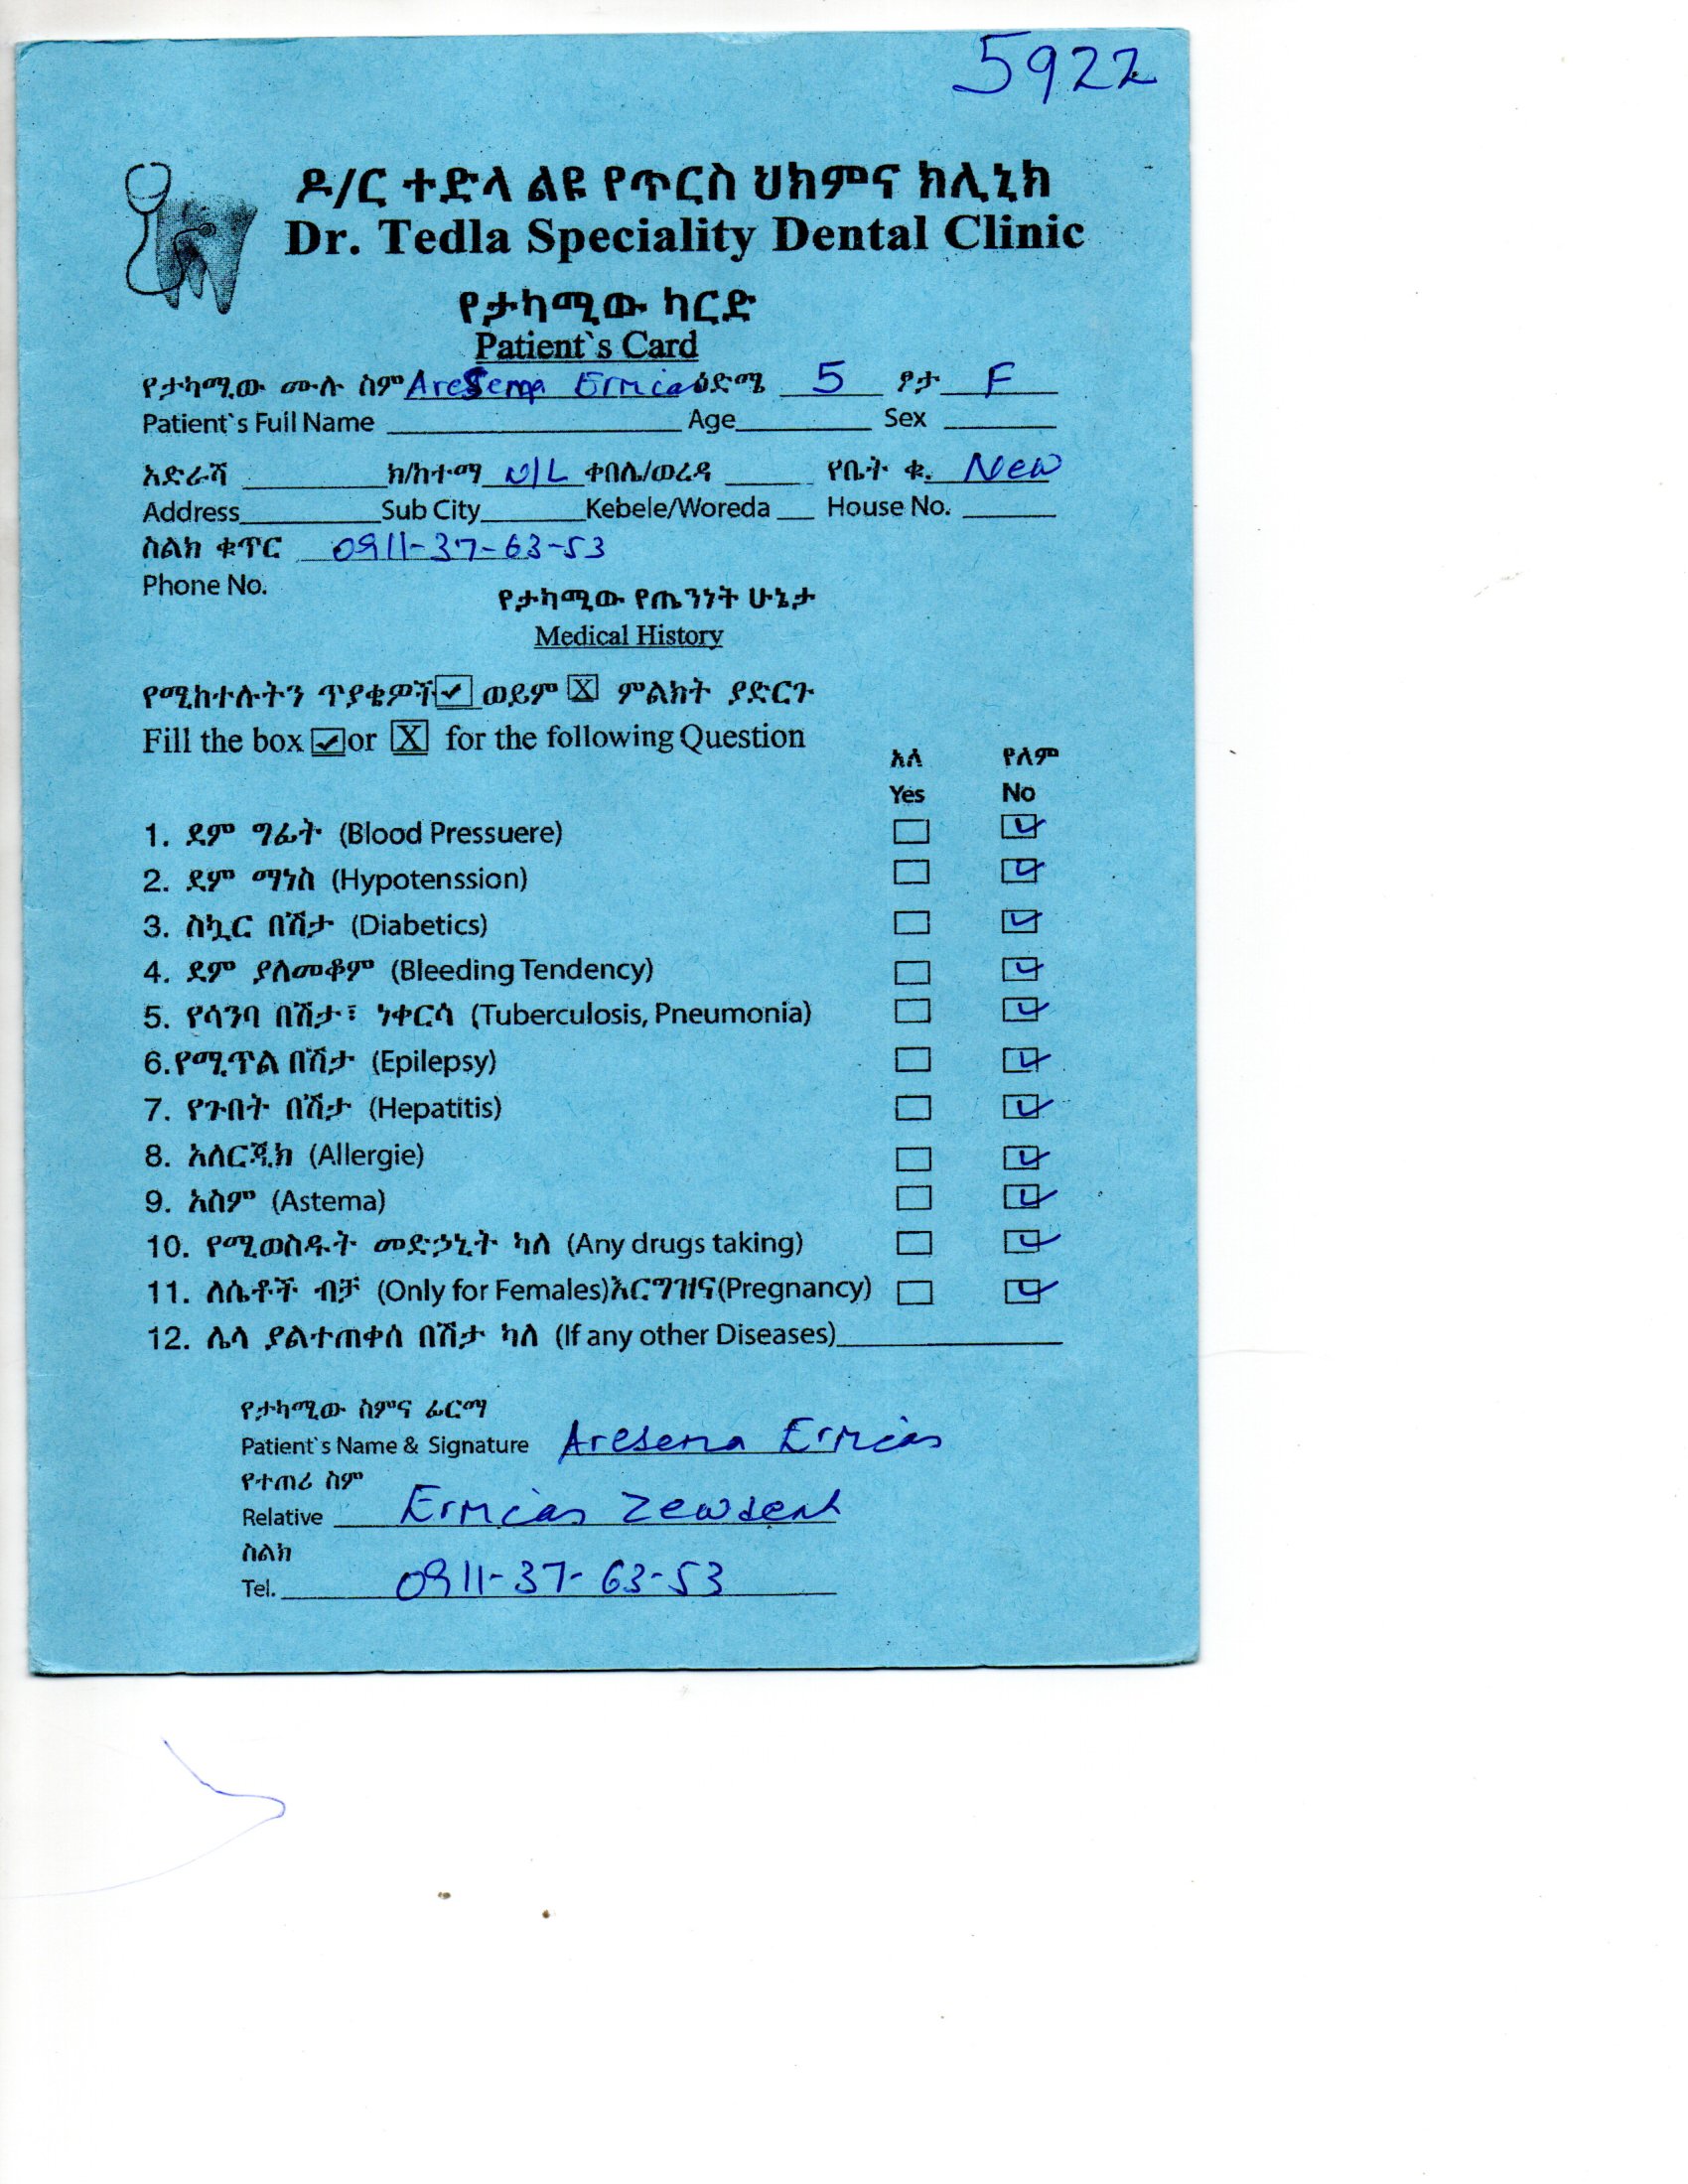 5922
ዶ/ር ተድላ ልዩ የጥርስ ህክምና ክሊኒክ
Dr. Tedla Speciality Dental Clinic
የታካሚው ካርድ
Patient`s Card
የታካሚው ሙሉ ስም Aresema Ermias ዕድሜ 5 ፆታ F
Patient`s Full Name Age Sex
አድራሻ ክ/ከተማ N/L ቀበሌ/ወረዳ የቤት ቁ. New
Address Sub City Kebele/Woreda House No.
ስልክ ቁጥር 0911-37-63-53
Phone No.
የታካሚው የጤንነት ሁኔታ
Medical History
የሚከተሉትን ጥያቄዎች ✓ ወይም X ምልክት ያድርጉ
Fill the box ✓ or X for the following Question
አለ የለም
Yes No
1. ደም ግፊት (Blood Pressuere) ✓
2. ደም ማነስ (Hypotenssion) ✓
3. ስኳር በሽታ (Diabetics) ✓
4. ደም ያለመቆም (Bleeding Tendency) ✓
5. የሳንባ በሽታ፣ ነቀርሳ (Tuberculosis, Pneumonia) ✓
6. የሚጥል በሽታ (Epilepsy) ✓
7. የጉበት በሽታ (Hepatitis) ✓
8. አለርጂክ (Allergie) ✓
9. አስም (Astema) ✓
10. የሚወስዱት መድኃኒት ካለ (Any drugs taking) ✓
11. ለሴቶች ብቻ (Only for Females) እርግዝና (Pregnancy) ✓
12. ሌላ ያልተጠቀሰ በሽታ ካለ (If any other Diseases)
የታካሚው ስምና ፊርማ
Patient`s Name & Signature Aresema Ermias
የተጠሪ ስም
Relative Ermias
ስልክ
Tel. 0911-37-63-53